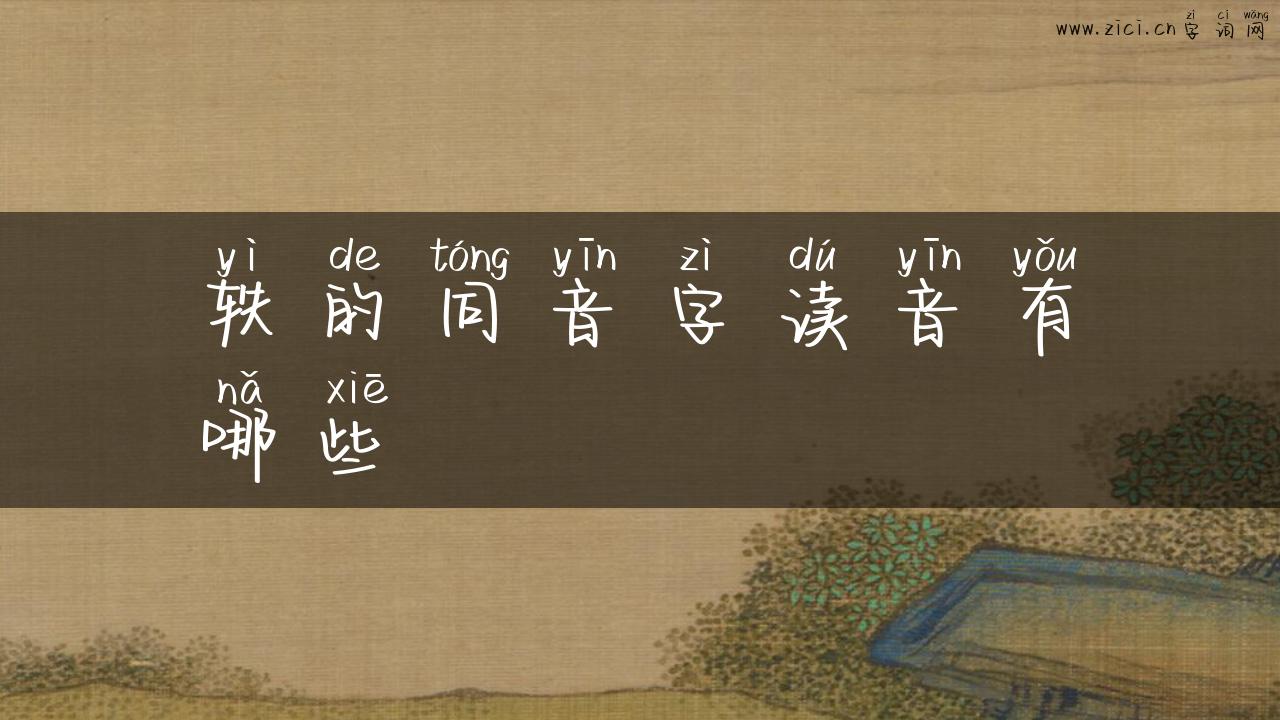 zì cí wǎng
www.zici.cn字词网
yì de tóng yīn zì dú yīn yǒu
轶的同音字读音有
nǎ xiē
哪些